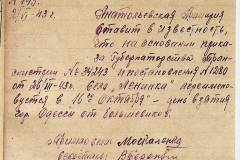 № 295.
2/VI-43 г.
Анатольевская Примария
ставит в известность,
что на основании прика-
за Губернаторства Тран-
снистрии № 24243 и постановления № 1280
от 26/III-43 г. село „Ленинка" переимено-
вуется в 16ое Октября" - день взятия
гор. Одессы от большевиков.
Примар села Москаленко
Секретарь